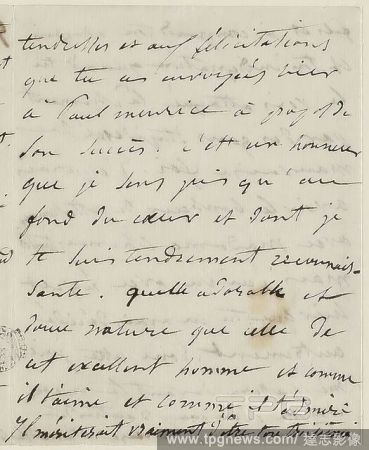 tendresses et aux félicitations
que tu as envoyées hier
à Paul meurice à propos de
son succès. c'est un honneur
que je sens jusqu'au
fond du cœur et dont je
te suis tendrement reconnais-
sante. quelle adorable et
douce nature que celle de
cet excellent homme et comme
il t'aime et comme il t'admire
Il mériterait vraiment d'être ton
TPG
www.tpgnews.com / 達志影像